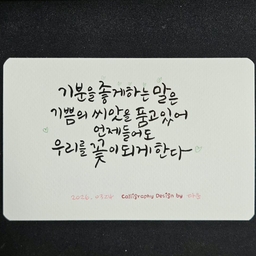 기분을 좋게하는 말은
기쁨의 씨앗을 품고있어
언제들어도
우리를 꽃이되게 한다
Calligraphy Design by